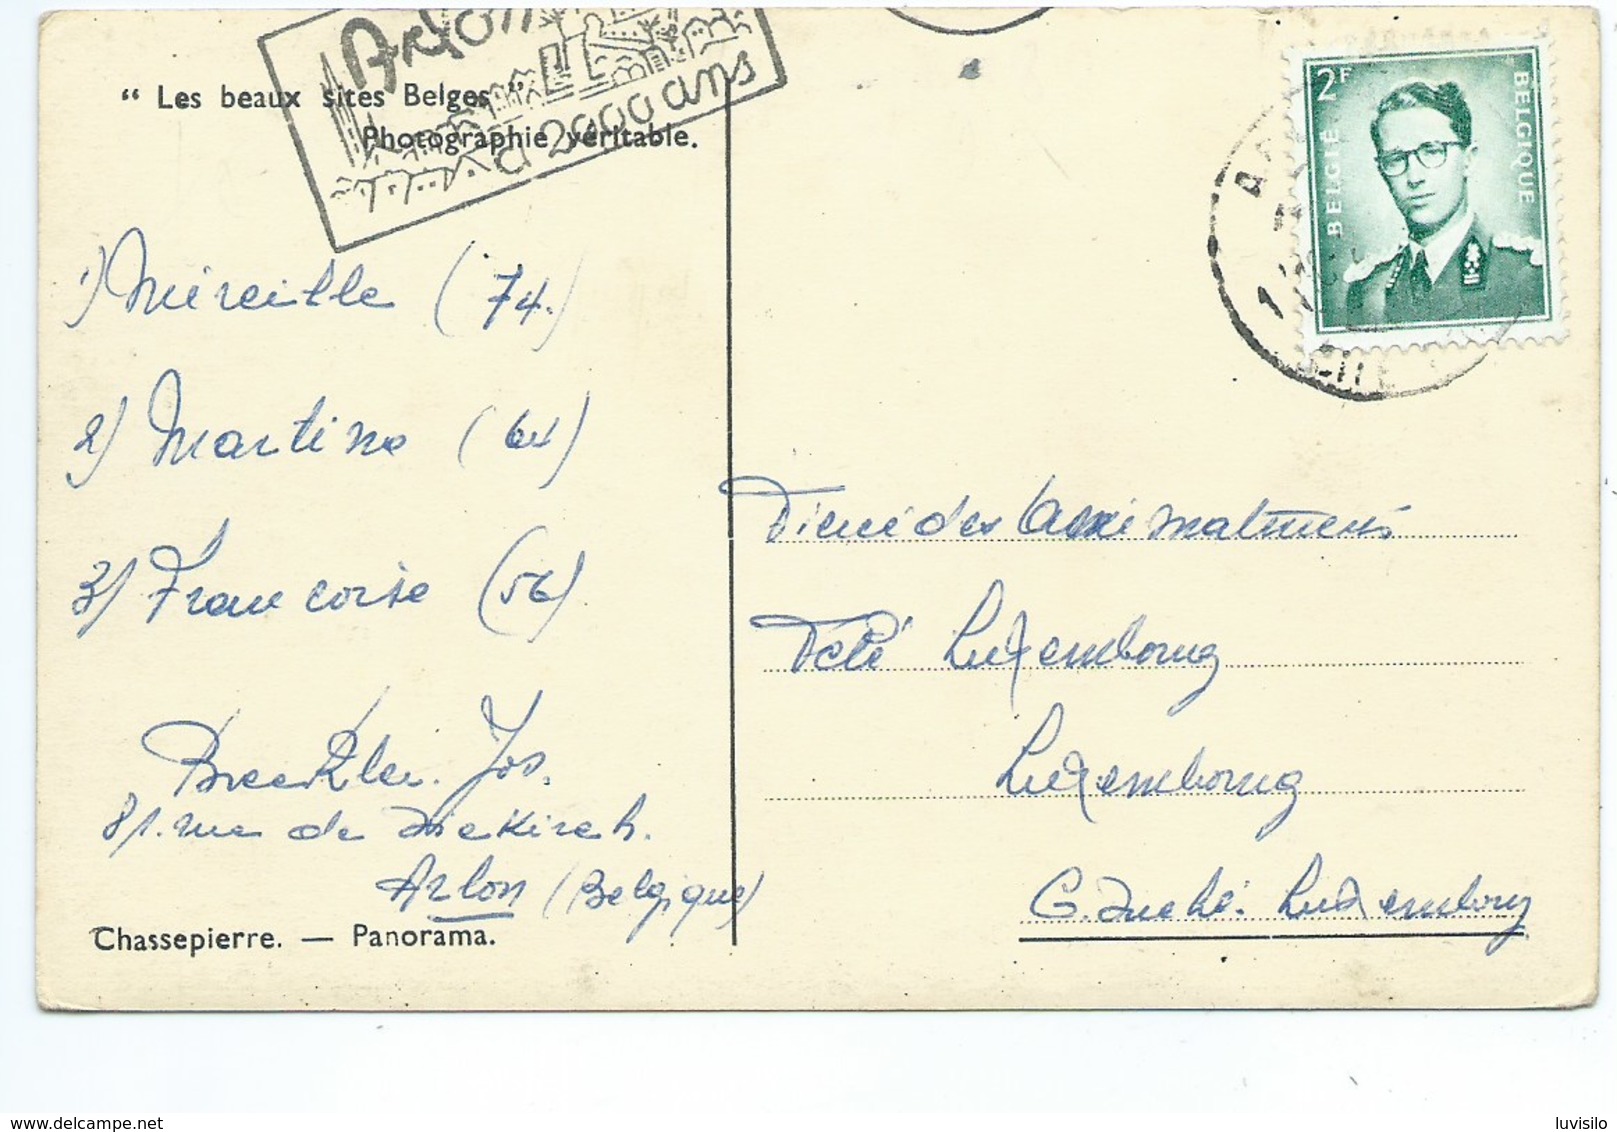 Arlon
a 2000 ans
“ Les beaux sites Belges ”
Photographie véritable.
2F
BELGIE
BELGIQUE
1) Mireille (74.)
2) Martine (64)
3) Francoise (56)
Jos.
81. rue de Diekirch.
Arlon (Belgique)
Chassepierre. — Panorama.
des
Télé Luxembourg
Luxembourg
G. Duché. Luxembourg
luvisilo